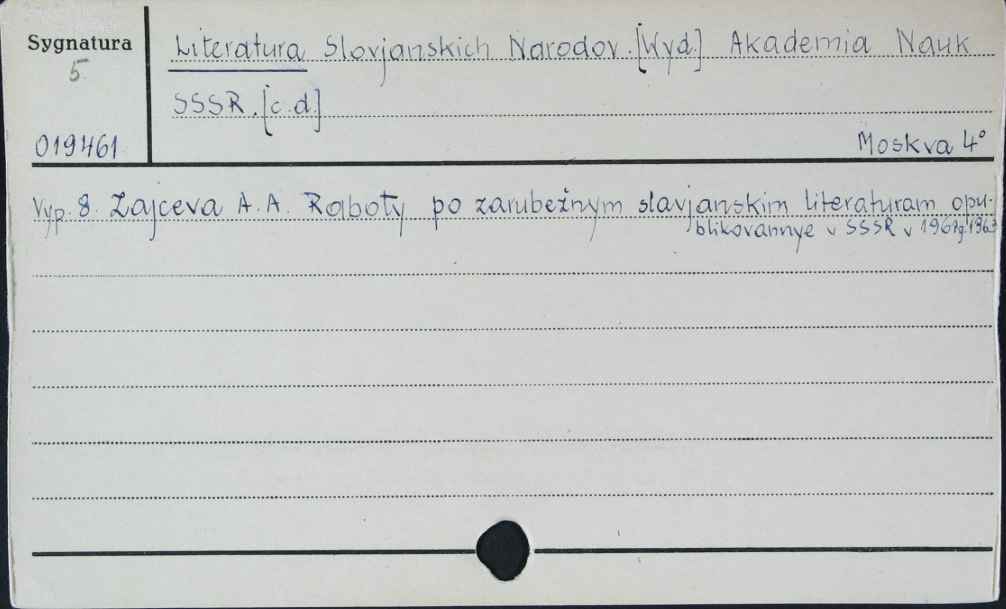 Sygnatura
5
Literatura Slovjanskich Narodov. [Wyd.] Akademia Nauk
SSSR. [c.d.]
019461
Moskva 4°
Vyp. 8. Zajceva A.A. Raboty po zarubežnym slavjanskim literaturam opu-
blikovannye v SSSR v 1962g. 1963